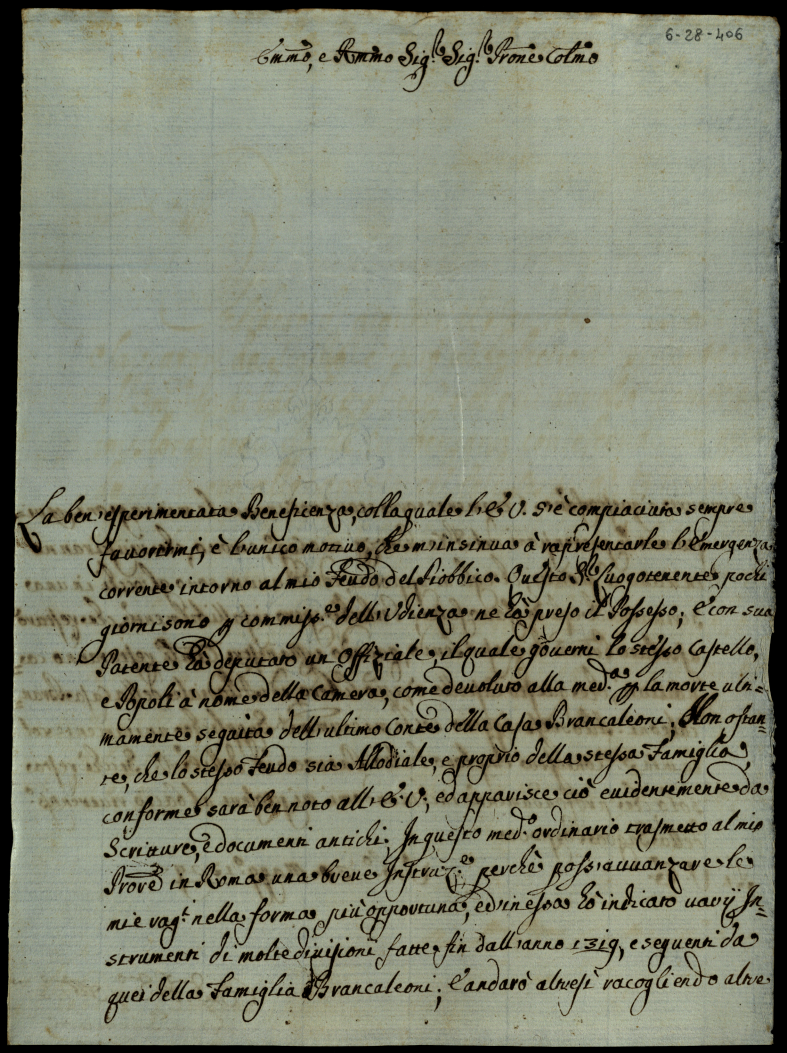 6-28-406
Emmo, e Rmmo Sig.r Sig.r Prone Colmo
La ben' esperimentata Beneficenza, colla quale l'E V. s'è compiaciuta sempre
favorirmi, è l'unico motivo, che m'insinua à rapresentarle l'emergenza
corrente intorno al mio Feudo del Piobbico. Questo Sr. Luogotenente pochi
giorni sono p commiss.e dell'Udienza ne hà preso il Possesso; E con sua
Patente hà deputato un Offiziale, il quale governi lo stesso Castello,
e Popoli à nome della Camera, come devoluto alla med.a p la morte ulti=
mamente seguita dell'ultimo Conte della Casa Brancaleoni; Non ostan=
te, che lo stesso Feudo sia Allodiale, e proprio della stessa Famiglia,
conforme sarà ben noto all'E. V., ed apparisce ciò evidentemente da
Scritture, e documenti antichi. In questo med.o ordinario trasmetto al mio
Prore in Roma una breve Instruz.e perchè poss'avvanzare le
mie rag.i nella forma più opportuna, ed in essa hò indicato varij In=
strumenti di molte divisioni fatte fin dall'anno 1319, e seguenti da
quei della Famiglia Brancaleoni; E andarò altresì racogliendo altre